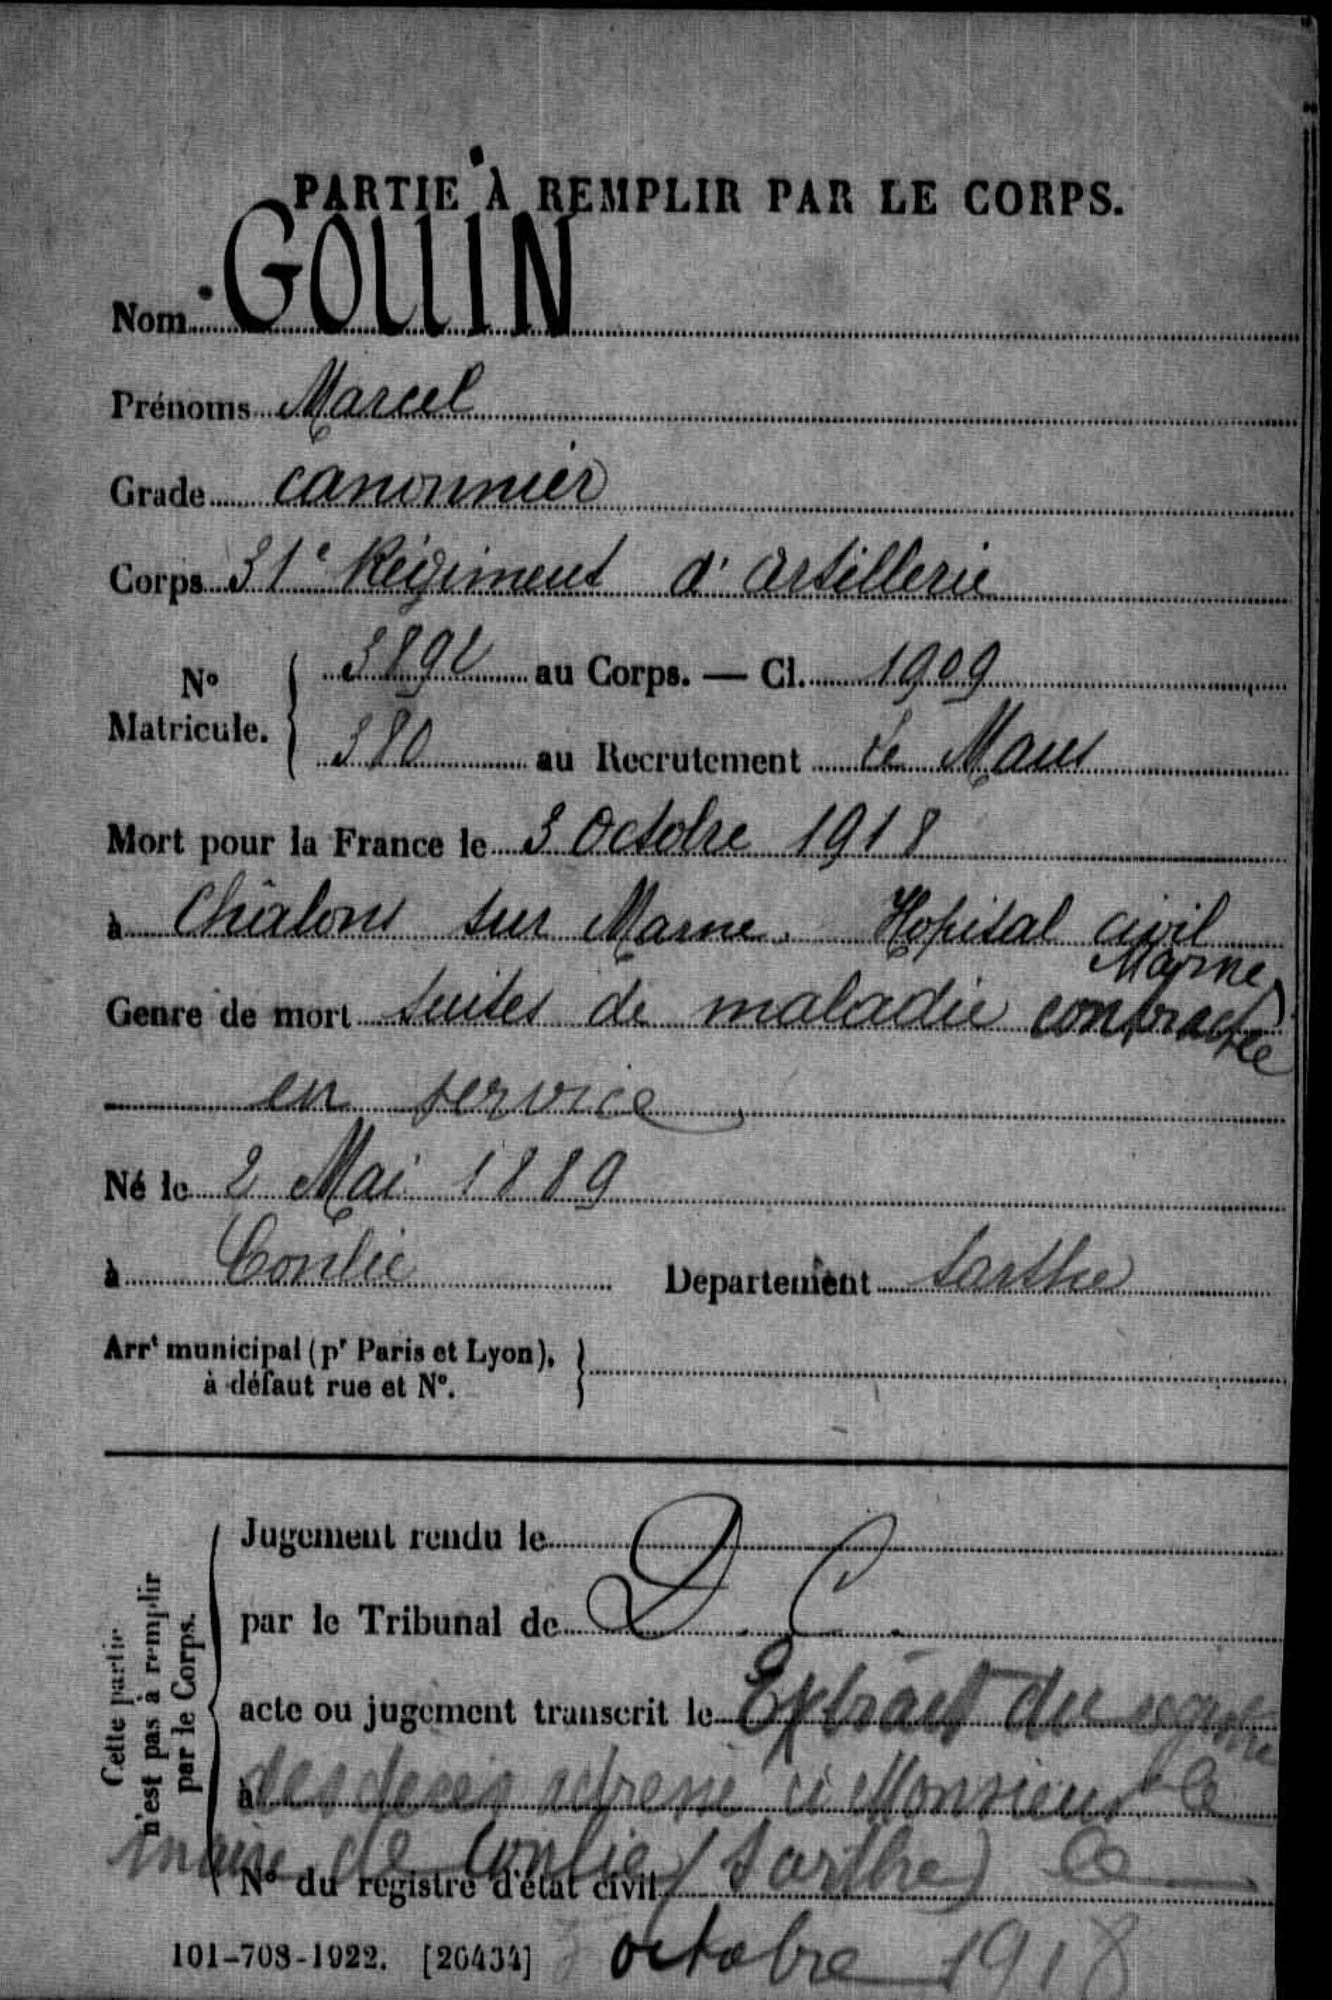 PARTIE À REMPLIR PAR LE CORPS.
Nom GOLLIN
Prénoms Marcel
Grade canonnier
Corps 31e Régiment d'artillerie
No Matricule. { 3892 au Corps. — Cl. 1909
380 au Recrutement Le Mans
Mort pour la France le 3 Octobre 1918
à Châlons sur Marne. Hopital civil
Marne
Genre de mort suites de maladie contractée
en service
Né le 2 Mai 1889
à Conlie Departement Sarthe
Arrt municipal (pr Paris et Lyon), à défaut rue et No. }
Cette partie n'est pas à remplir par le Corps.
Jugement rendu le
par le Tribunal de D. C.
acte ou jugement transcrit le Extrait du registre
à des décès adressé à Monsieur le
maire de Conlie (Sarthe) le
No du registre d'état civil
octobre 1918
101-708-1922. [26434]